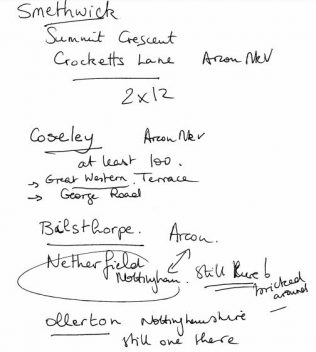 Smethwick
Summit Crescent
Crocketts Lane Arcon MkV
2x12
Coseley Arcon MkV
at least 100.
→ Great Western Terrace
→ George Road
Bilsthorpe. Arcon.
Netherfield
Nottingham. Still here b
bricked
around
Ollerton Nottinghamshire
still one there